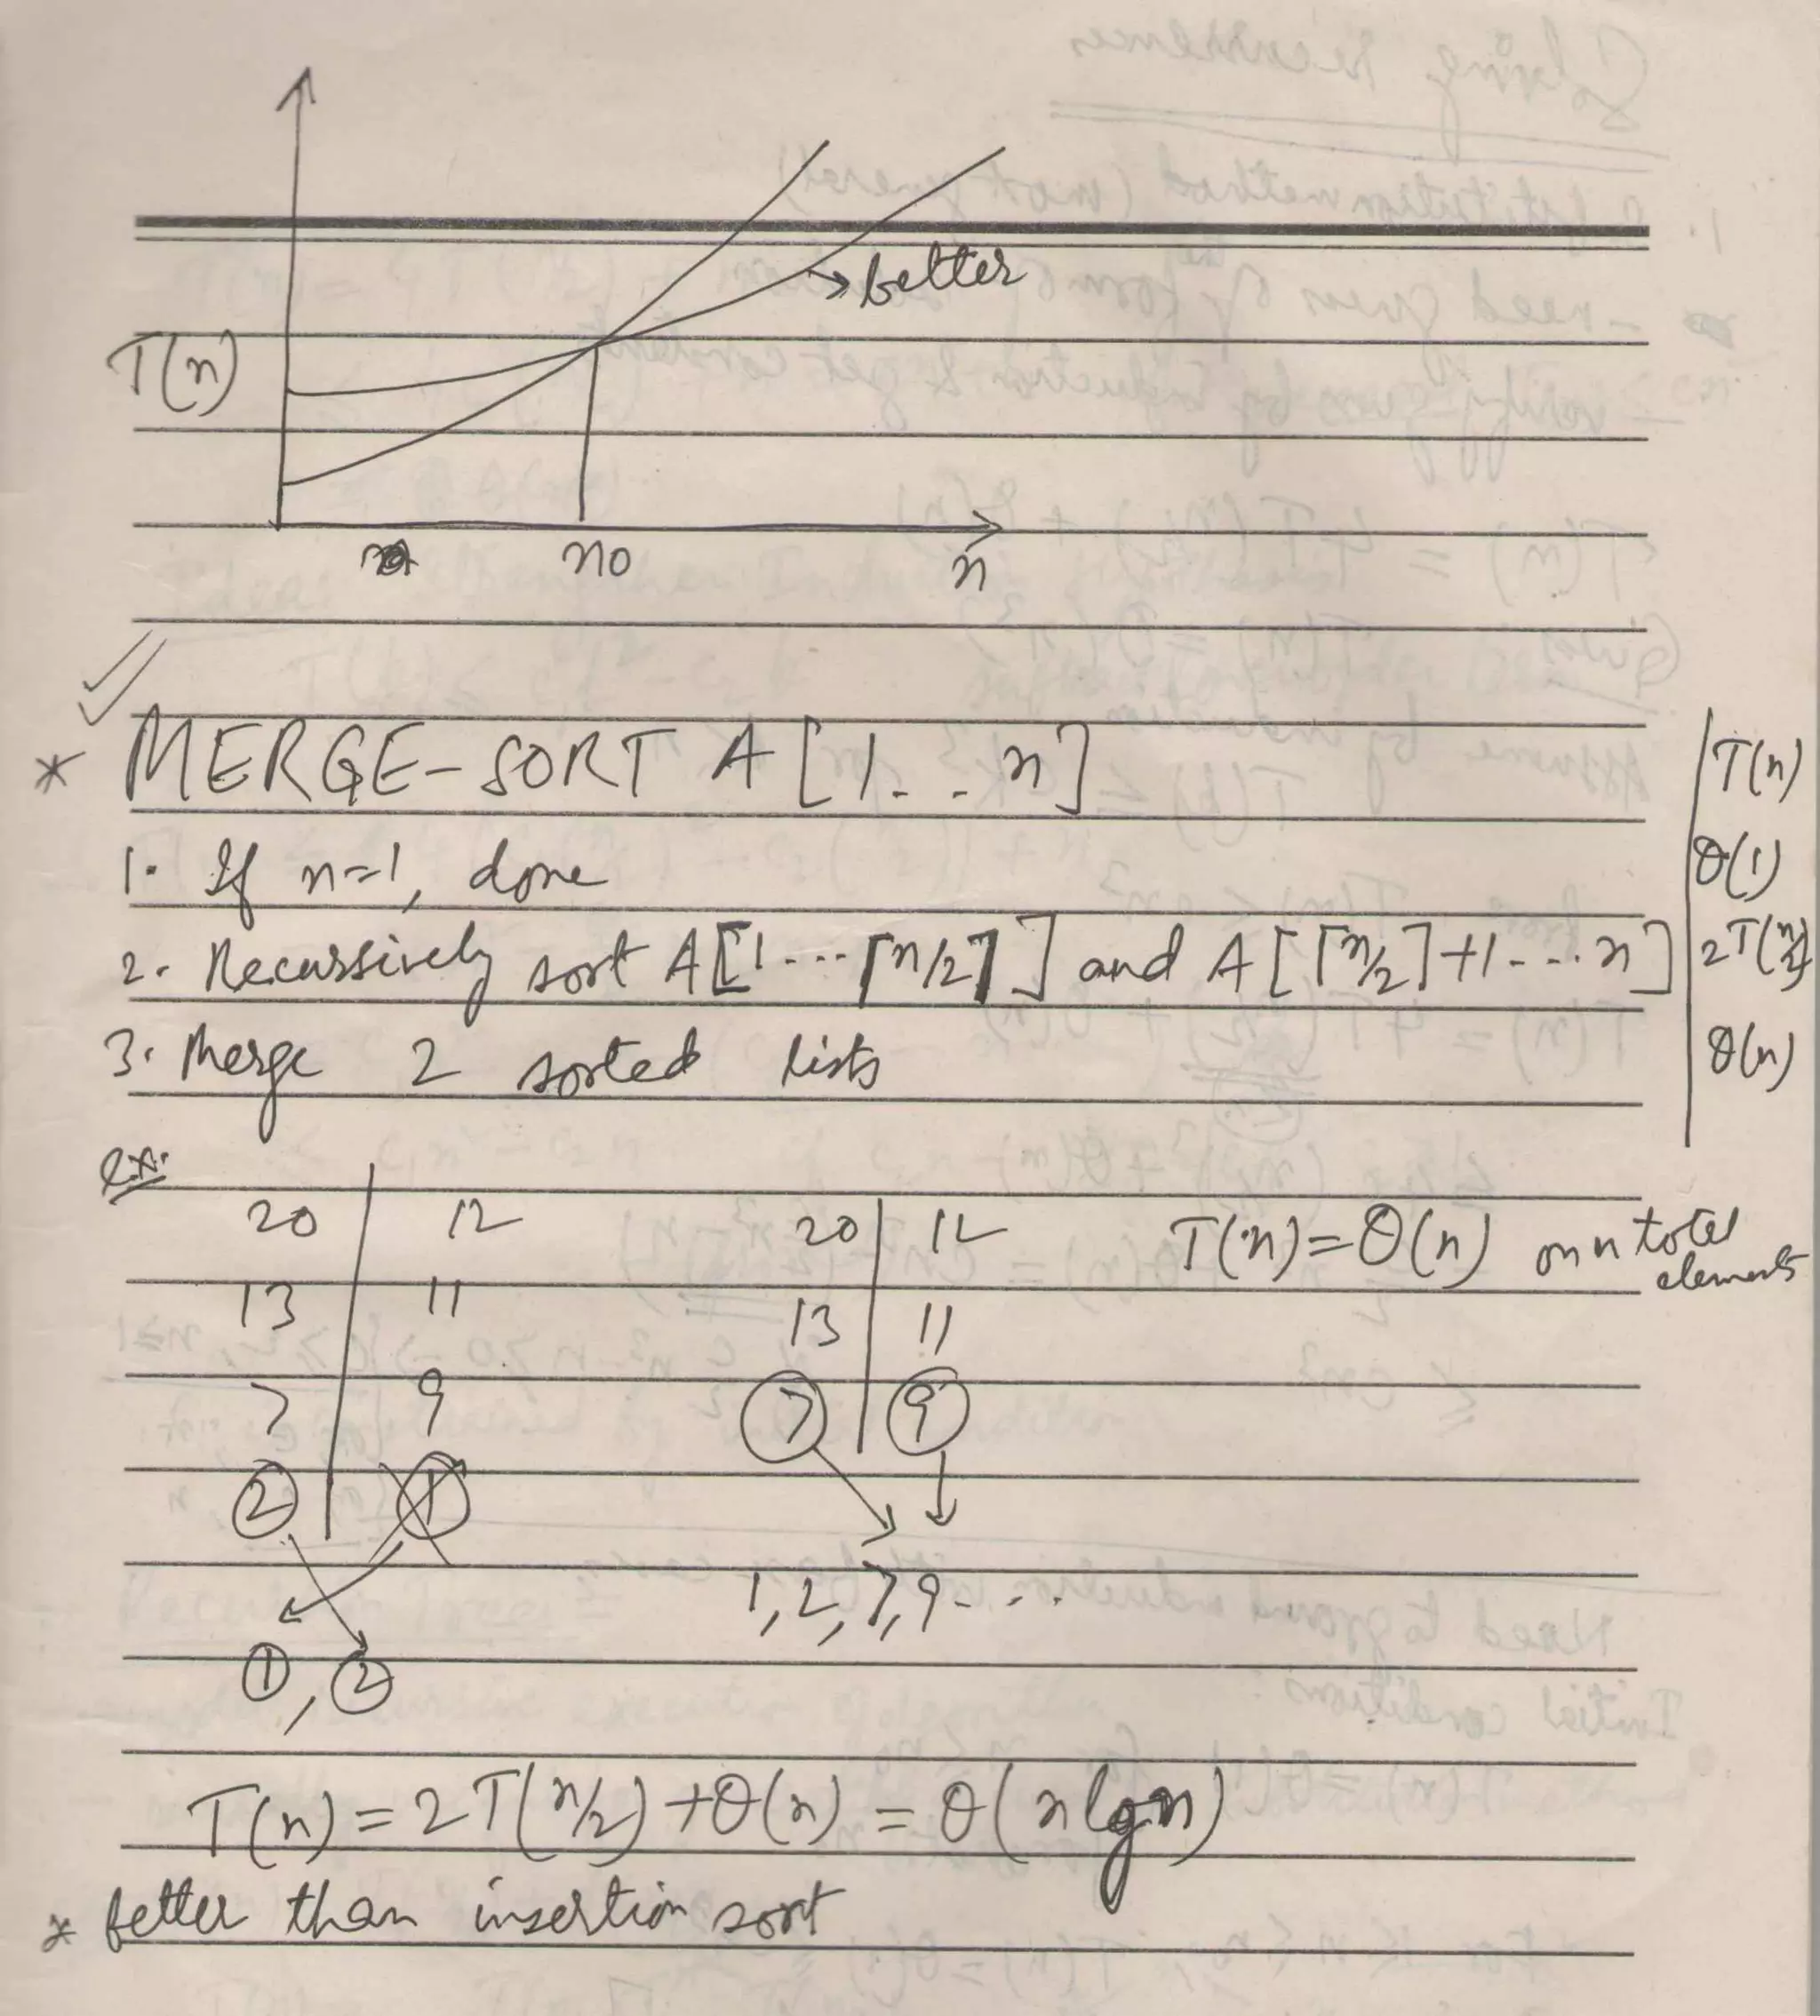 better
T(n)
n0
n
* MERGE-SORT A[1. . n] | T(n)
1. If n=1, done | θ(1)
2. Recursively sort A[1...⌈n/2⌉] and A[⌈n/2⌉+1...n] | 2T(n/2)
3. Merge 2 sorted lists | θ(n)
ex.
20 | 12 20 | 12 T(n)=θ(n) on n total elements
13 11 13 11
7 9 7 9
2 1
1,2,7,9....
1, 2
T(n)=2T(n/2)+θ(n) = θ(n lgn)
* better than insertion sort